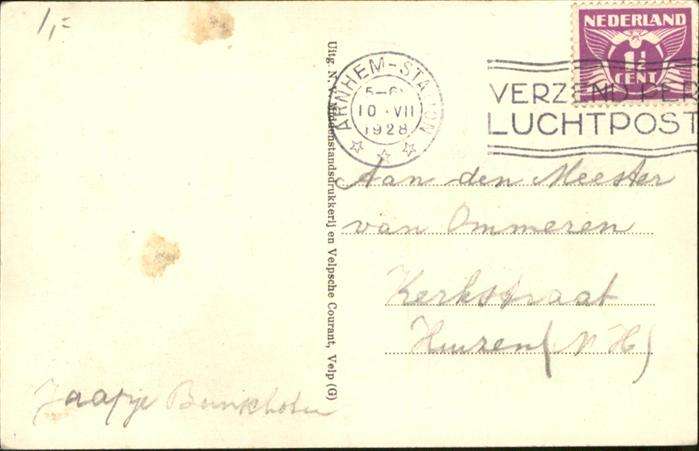 1,=
NEDERLAND
1½
CENT
ARNHEM-STATION
10 VII
1928
VERZEND PER
LUCHTPOST
Uitg. N. V. Middenstandsdrukkerij en Velpsche Courant, Velp (G)
Aan den Meester
van Ommeren
Kerkstraat
Huizen (N H)
Jaapje